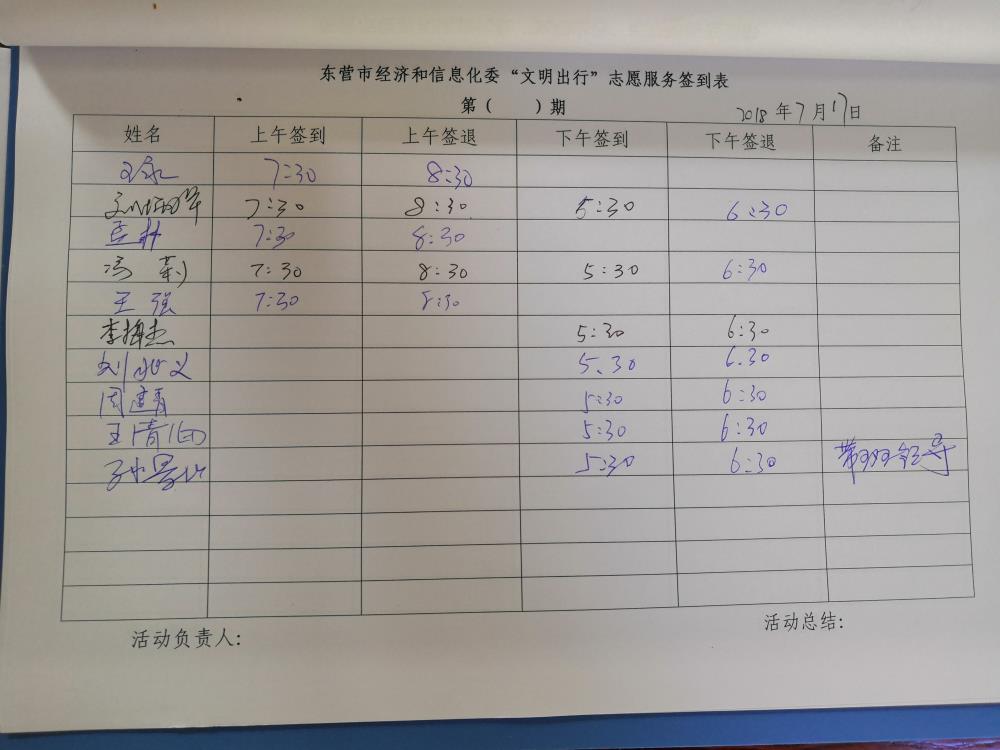 东营市经济和信息化委“文明出行”志愿服务签到表
第（ ）期 2018年7月17日
姓名 上午签到 上午签退 下午签到 下午签退 备注
7:30 8:30
7:30 8:30 5:30 6:30
7:30 8:30
冯 莉 7:30 8:30 5:30 6:30
王 强 7:30 8:30
李梅杰 5:30 6:30
刘 义 5.30 6.30
周建青 5:30 6:30
王清 5:30 6:30
5:30 6:30 带班领导
活动负责人: 活动总结: